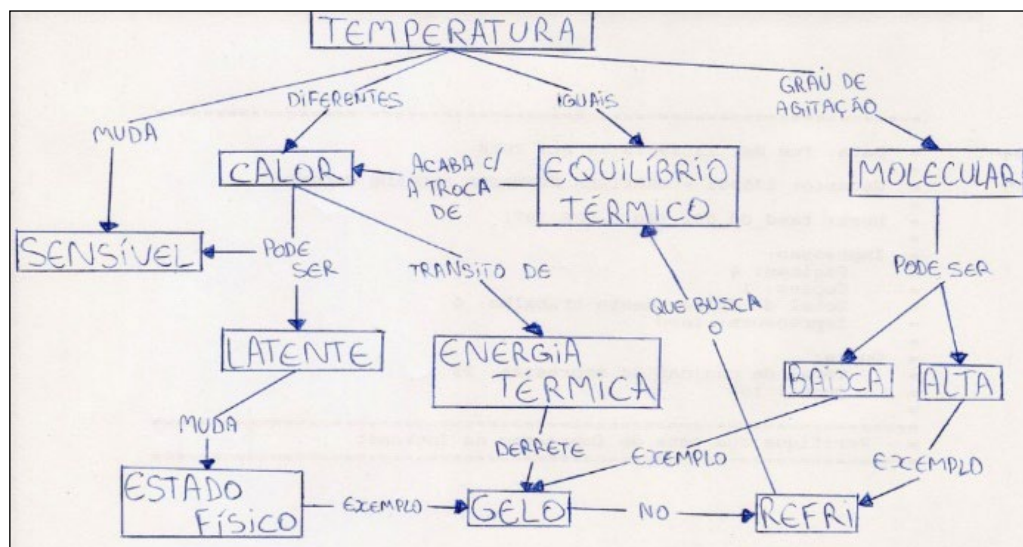 TEMPERATURA
MUDA
DIFERENTES
IGUAIS
GRAU DE
AGITAÇÃO
CALOR
ACABA C/
A TROCA
DE
EQUILÍBRIO
TÉRMICO
MOLECULAR
SENSÍVEL
PODE
SER
TRANSITO DE
QUE BUSCA
O
PODE SER
LATENTE
ENERGIA
TÉRMICA
BAIXA
ALTA
MUDA
DERRETE
EXEMPLO
EXEMPLO
ESTADO
FÍSICO
EXEMPLO
GELO
NO
REFRI